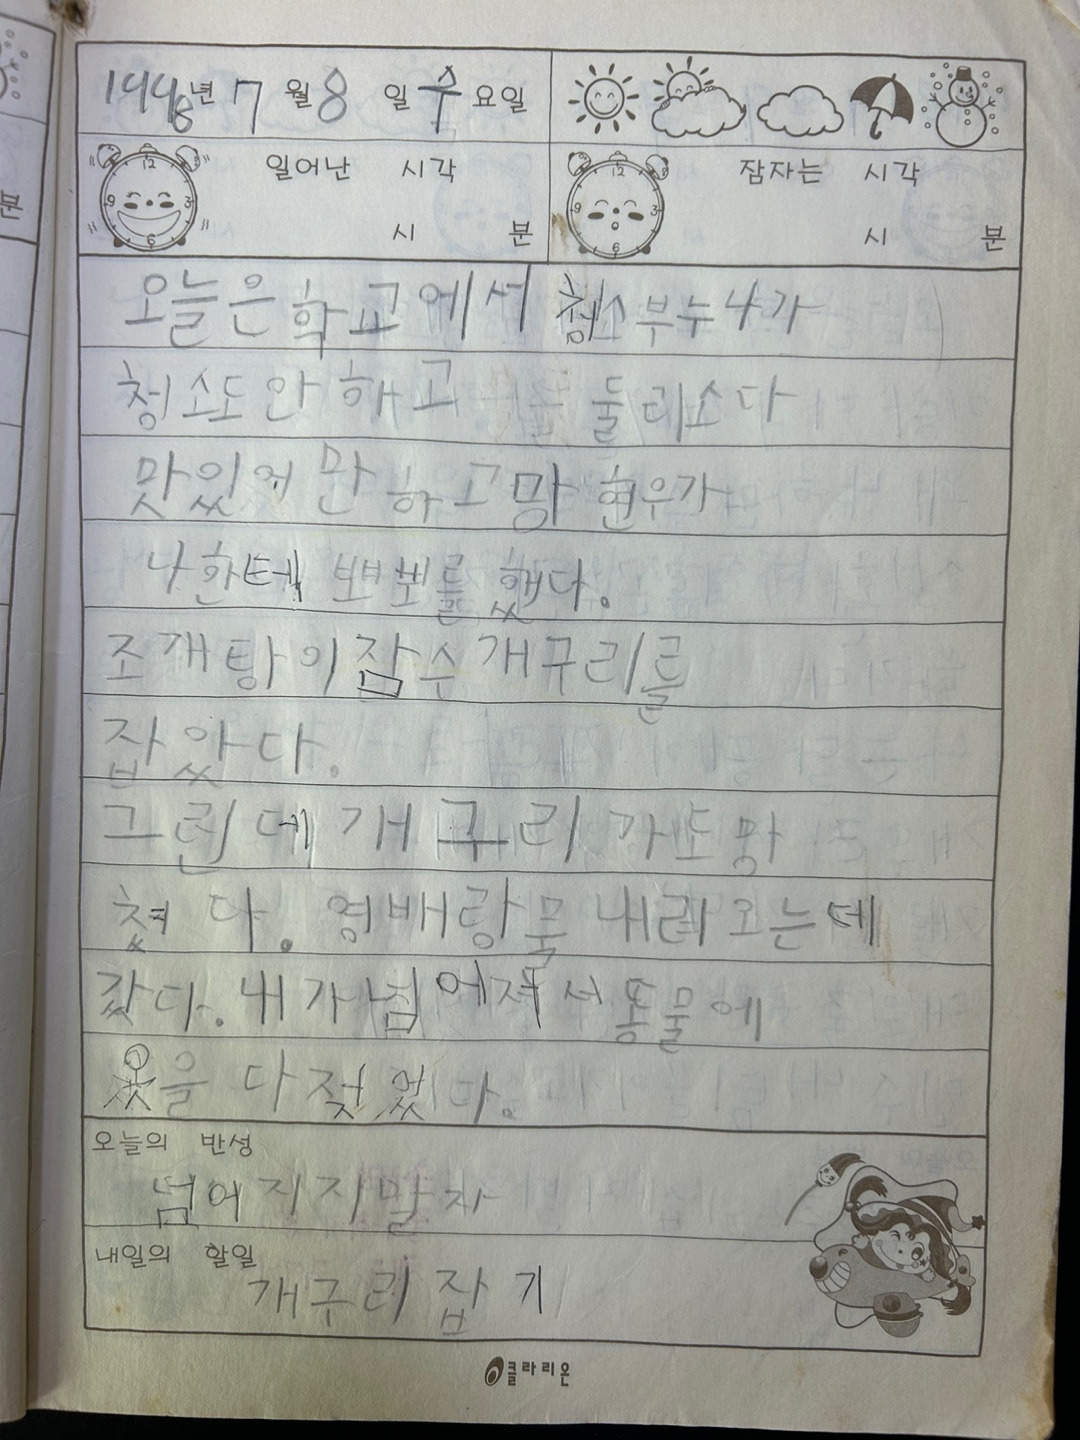 1998년 7월 8일 수요일
일어난 시각
시 분
잠자는 시각
시 분
오늘은 학교에서 청소부누나가
청소도 안 해고 둘리소다
맛있어 만 하고 망 현우가
나한테 뽀뽀를 했다.
조개탕이 잠수 개구리를
잡았다.
그린데 개구리가 도망
쳤다. 영배랑 물 내려 오는데
갔다. 내가 넘어져서 똥물에
옷을 다 젖었다.
오늘의 반성
넘어지지 말자
내일의 할일
개구리 잡기
클라리온
분